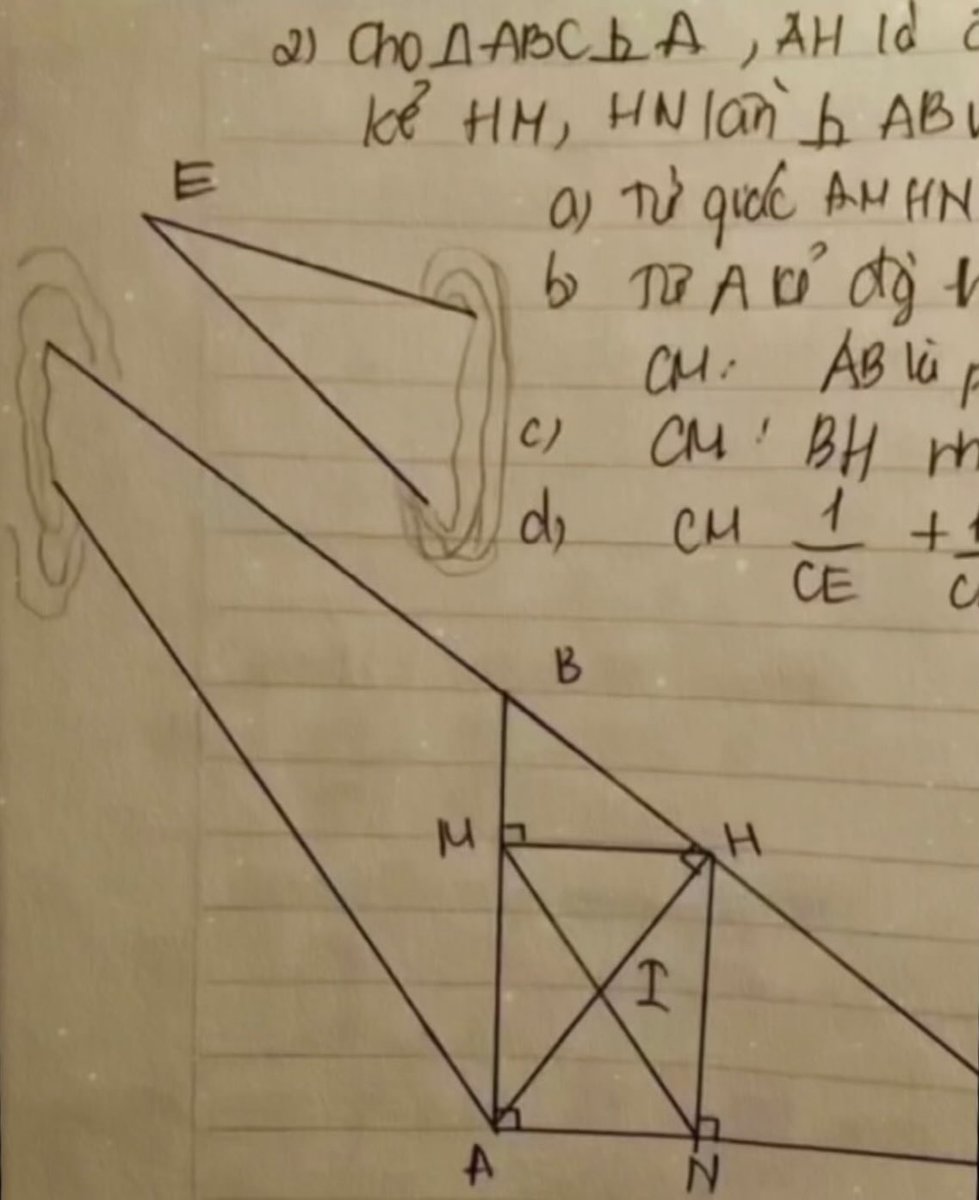 2) Cho ΔABC ⊥ A , AH là
kẻ HM, HN lần ⊥ AB
E
a) Tứ giác AMHN
b) Từ A kẻ đg
CM: AB là
c) CM: BH
d) CM 1/CE +
B
M H
I
A N